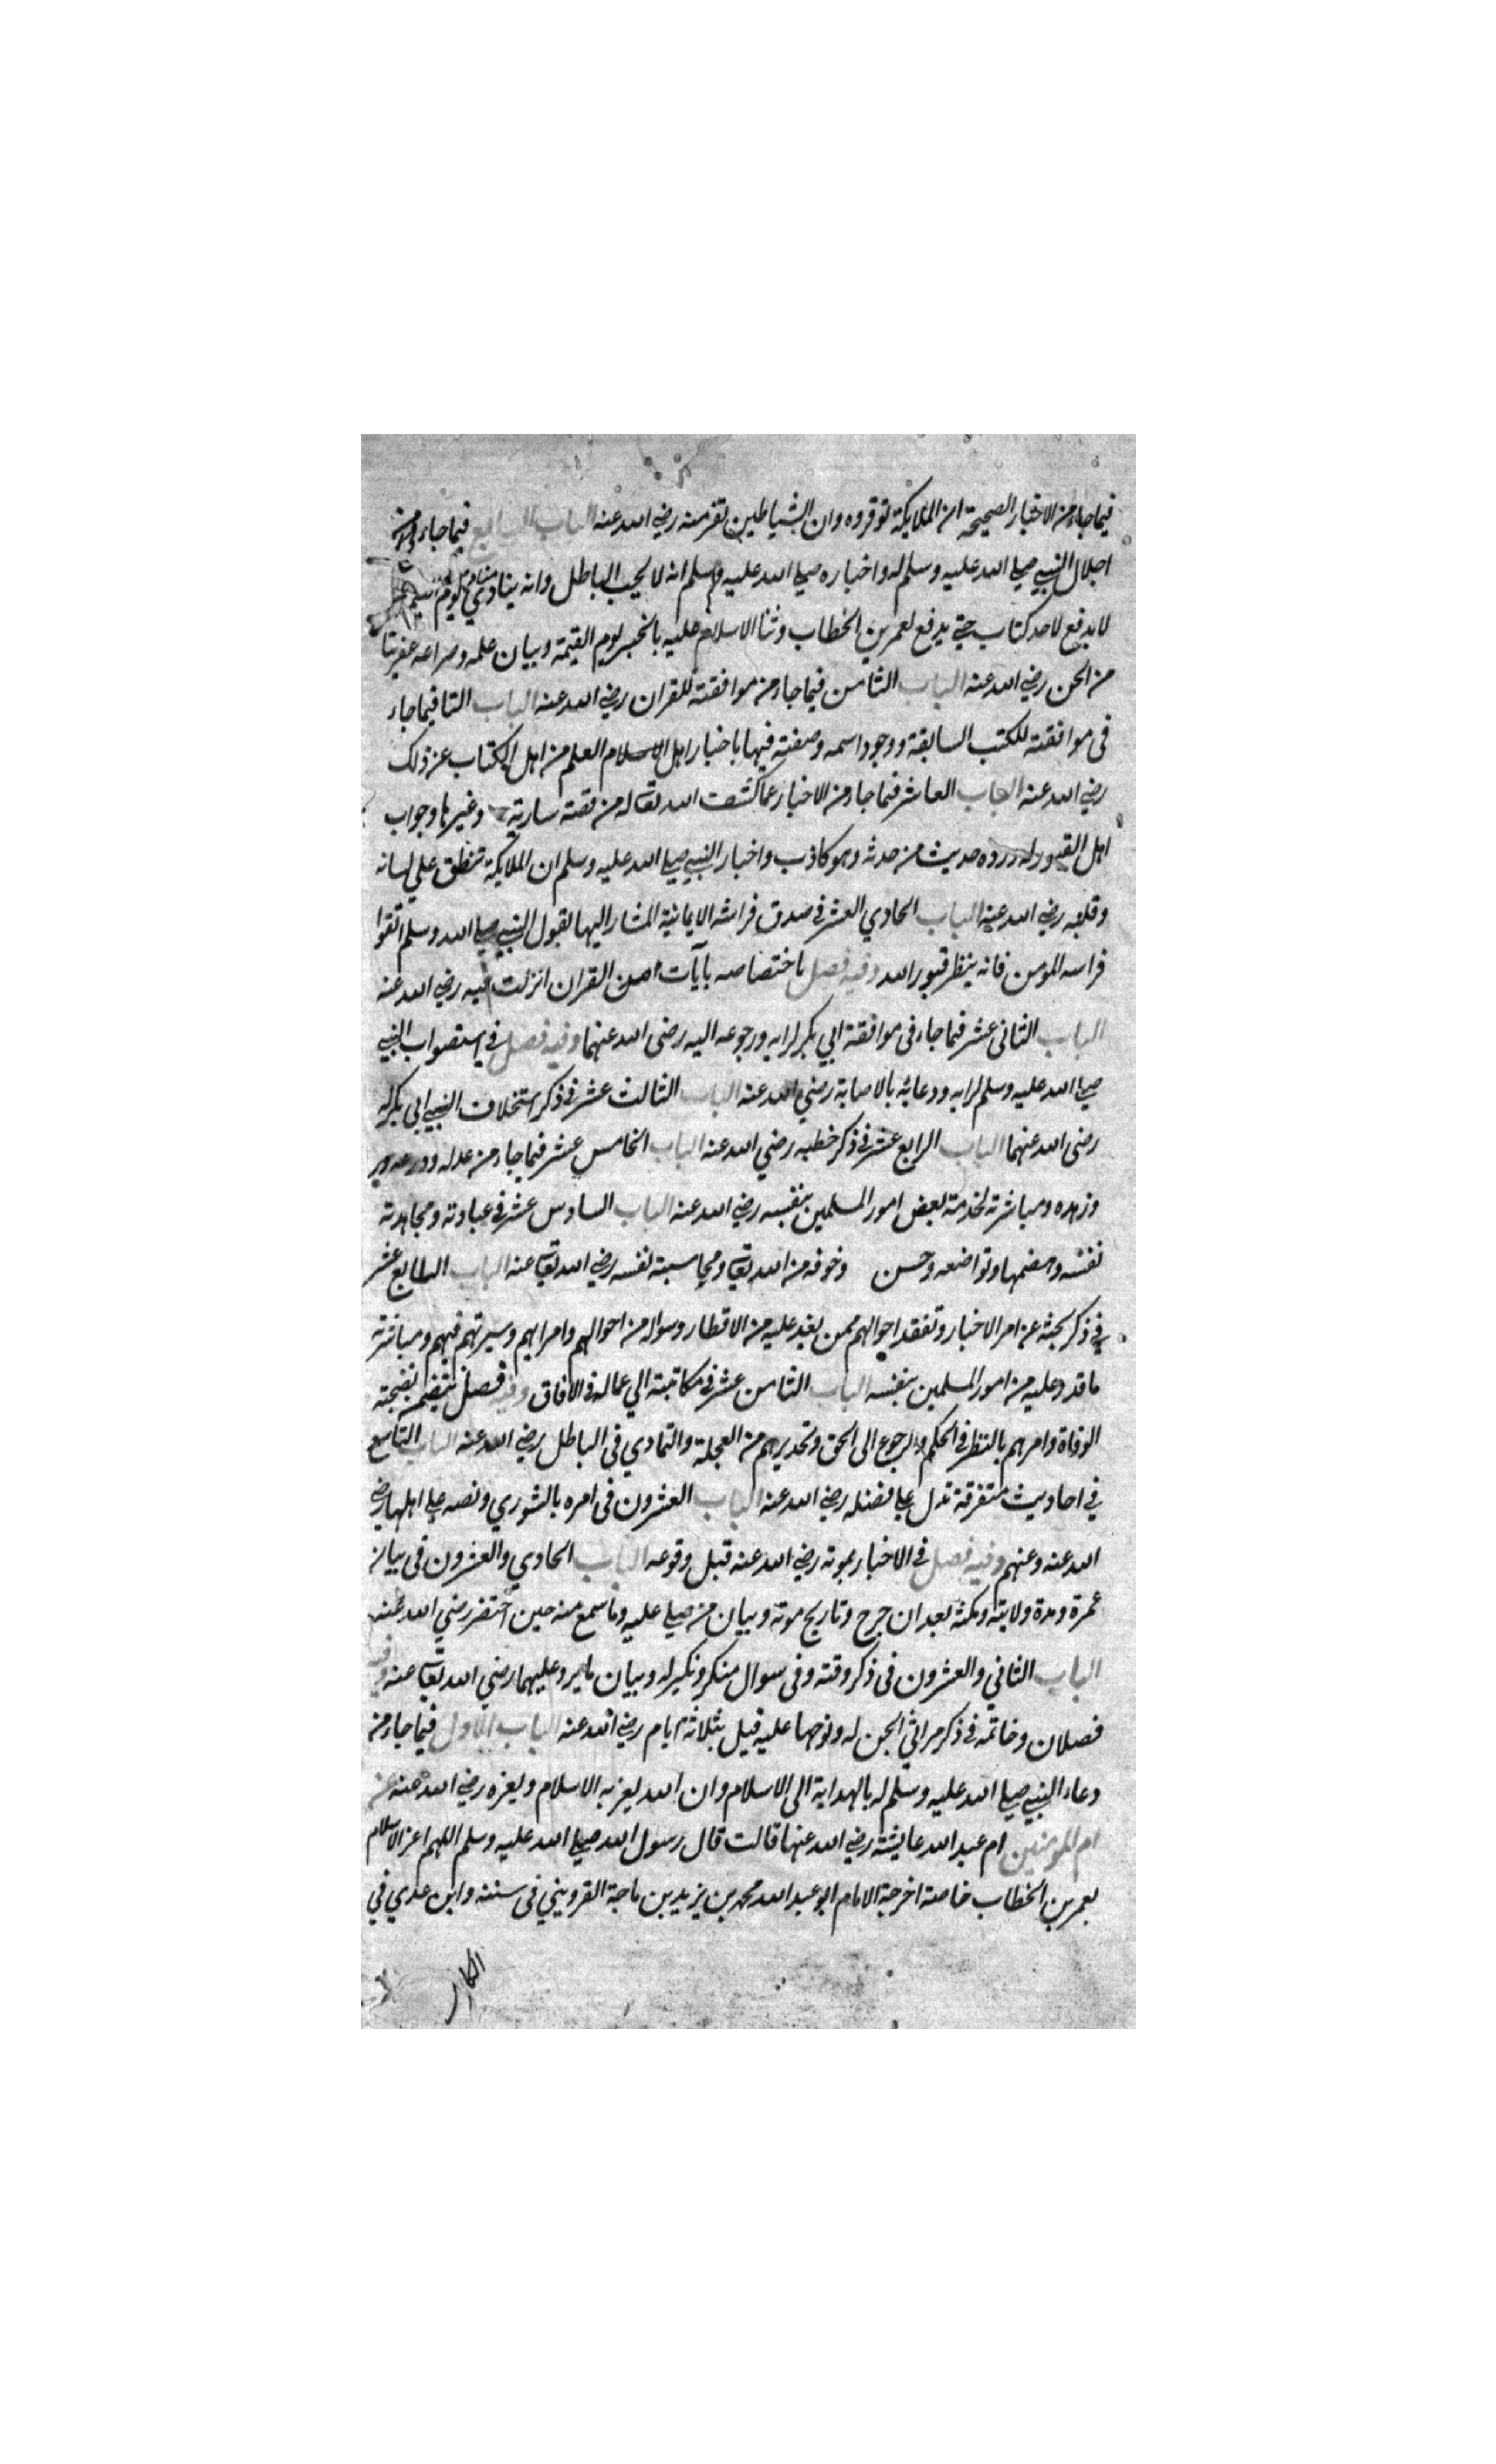 فيما جاء من الاخبار الصحيحة ان الملايكة توقروه وان الشياطين تفر منه رضي الله عنه الباب السابع فيما جاء من
اجلال النبي صلي الله عليه وسلم له واخباره صلي الله عليه وسلم انه لا يحب الباطل وانه ينادي مناد يوم
لا يدفع لاحد كتاب حتي يدفع لعمر بن الخطاب وثنا الاسلام عليه بالخير يوم القيمة وبيان علمه وصراعه عفريتا
من الجن رضي الله عنه الباب الثامن فيما جاء من موافقته للقران رضي الله عنه الباب التا فيما جاء
في موافقته للكتب السابقة ووجود اسمه وصفته فيها باخبار اهل الاسلام العلم من اهل الكتاب عن ذلك
رضي الله عنه الباب العاشر فيما جاء من الاخبار عما كشف الله تعالى له من قصة سارية وغيرها وجواب
اهل القبور له ورده حديث من حدثه وهو كاذب واخبار النبي صلي الله عليه وسلم ان الملايكة تنطق علي لسانه
وقلبه رضي الله عنه الباب الحادي العشر في صدق فراسته الايمانية المشار اليها بقول النبي صلي الله وسلم اتقوا
فراسه المومن فانه ينظر بنور الله وفيه فصل باختصاصه بآيات من القران انزلت فيه رضي الله عنه
الباب الثاني عشر فيما جاء في موافقة ابي بكر لرايه ورجوعه اليه رضي الله عنهما وفيه فصل في استصواب النبي
صلي الله عليه وسلم لرايه ودعائه بالاصابة رضي الله عنه الباب الثالث عشر في ذكر استخلاف النبي ابي بكر له
رضي الله عنهما الباب الرابع عشر في ذكر خطبه رضي الله عنه الباب الخامس عشر فيما جاء من عدله وورعه
وزهده ومباشرته لخدمة بعض امور المسلمين بنفسه رضي الله عنه الباب السادس عشر في عبادته ومجاهدته
نفسه وهضمها وتواضعه وحسن وخوفه من الله تعالى ومحاسبته نفسه رضي الله تعالى عنه الباب السابع عشر
في ذكر بحثه عن امر الاخبار وتفقد احوالهم ممن بعيد عليه من الاقطار وسواله من احوالهم وامرايهم وسيرتهم فيهم ومباشرته
ما قدر عليه من امور المسلمين بنفسه الباب الثامن عشر في مكاتبته الي عماله في الافاق وفيه فصل يتضمن نصيحته
الوفاة وامرهم بالنظر في الحكم والرجوع الى الحق وتحذيرهم من العجلة والتمادي في الباطل رضي الله عنه الباب التاسع
في احاديث متفرقة تدل علي فضله رضي الله عنه الباب العشرون في امره بالشوري ونصه علي اهلها رضي
الله عنه وعنهم وفيه فصل في الاخبار بموته رضي الله عنه قبل وقوعه الباب الحادي والعشرون في بيان
عمره ومدة ولايته ومكثه بعد ان جرح وتاريخ موته وبيان من صلي عليه وما سمع منه حين احتضر رضي الله عنه
الباب الثاني والعشرون في ذكر وقته وفي سوال منكر ونكير له وبيان ما يرد عليهما رضي الله تعالى عنه وفيه
فصلان وخاتمه في ذكر مراثي الجن له ونوحها عليه قبل بثلاثة ايام رضي الله عنه الباب الاول فيما جاء من
دعاء النبي صلي الله عليه وسلم له بالهداية الى الاسلام وان الله يعز به الاسلام ويعزه رضي الله عنه عن
ام المومنين ام عبد الله عايشة رضي الله عنها قالت قال رسول الله صلي الله عليه وسلم اللهم اعز الاسلام
بعمر بن الخطاب خاصة اخرجه الامام ابو عبد الله محمد بن يزيد بن ماجة القزويني في سننه وابن عدي في